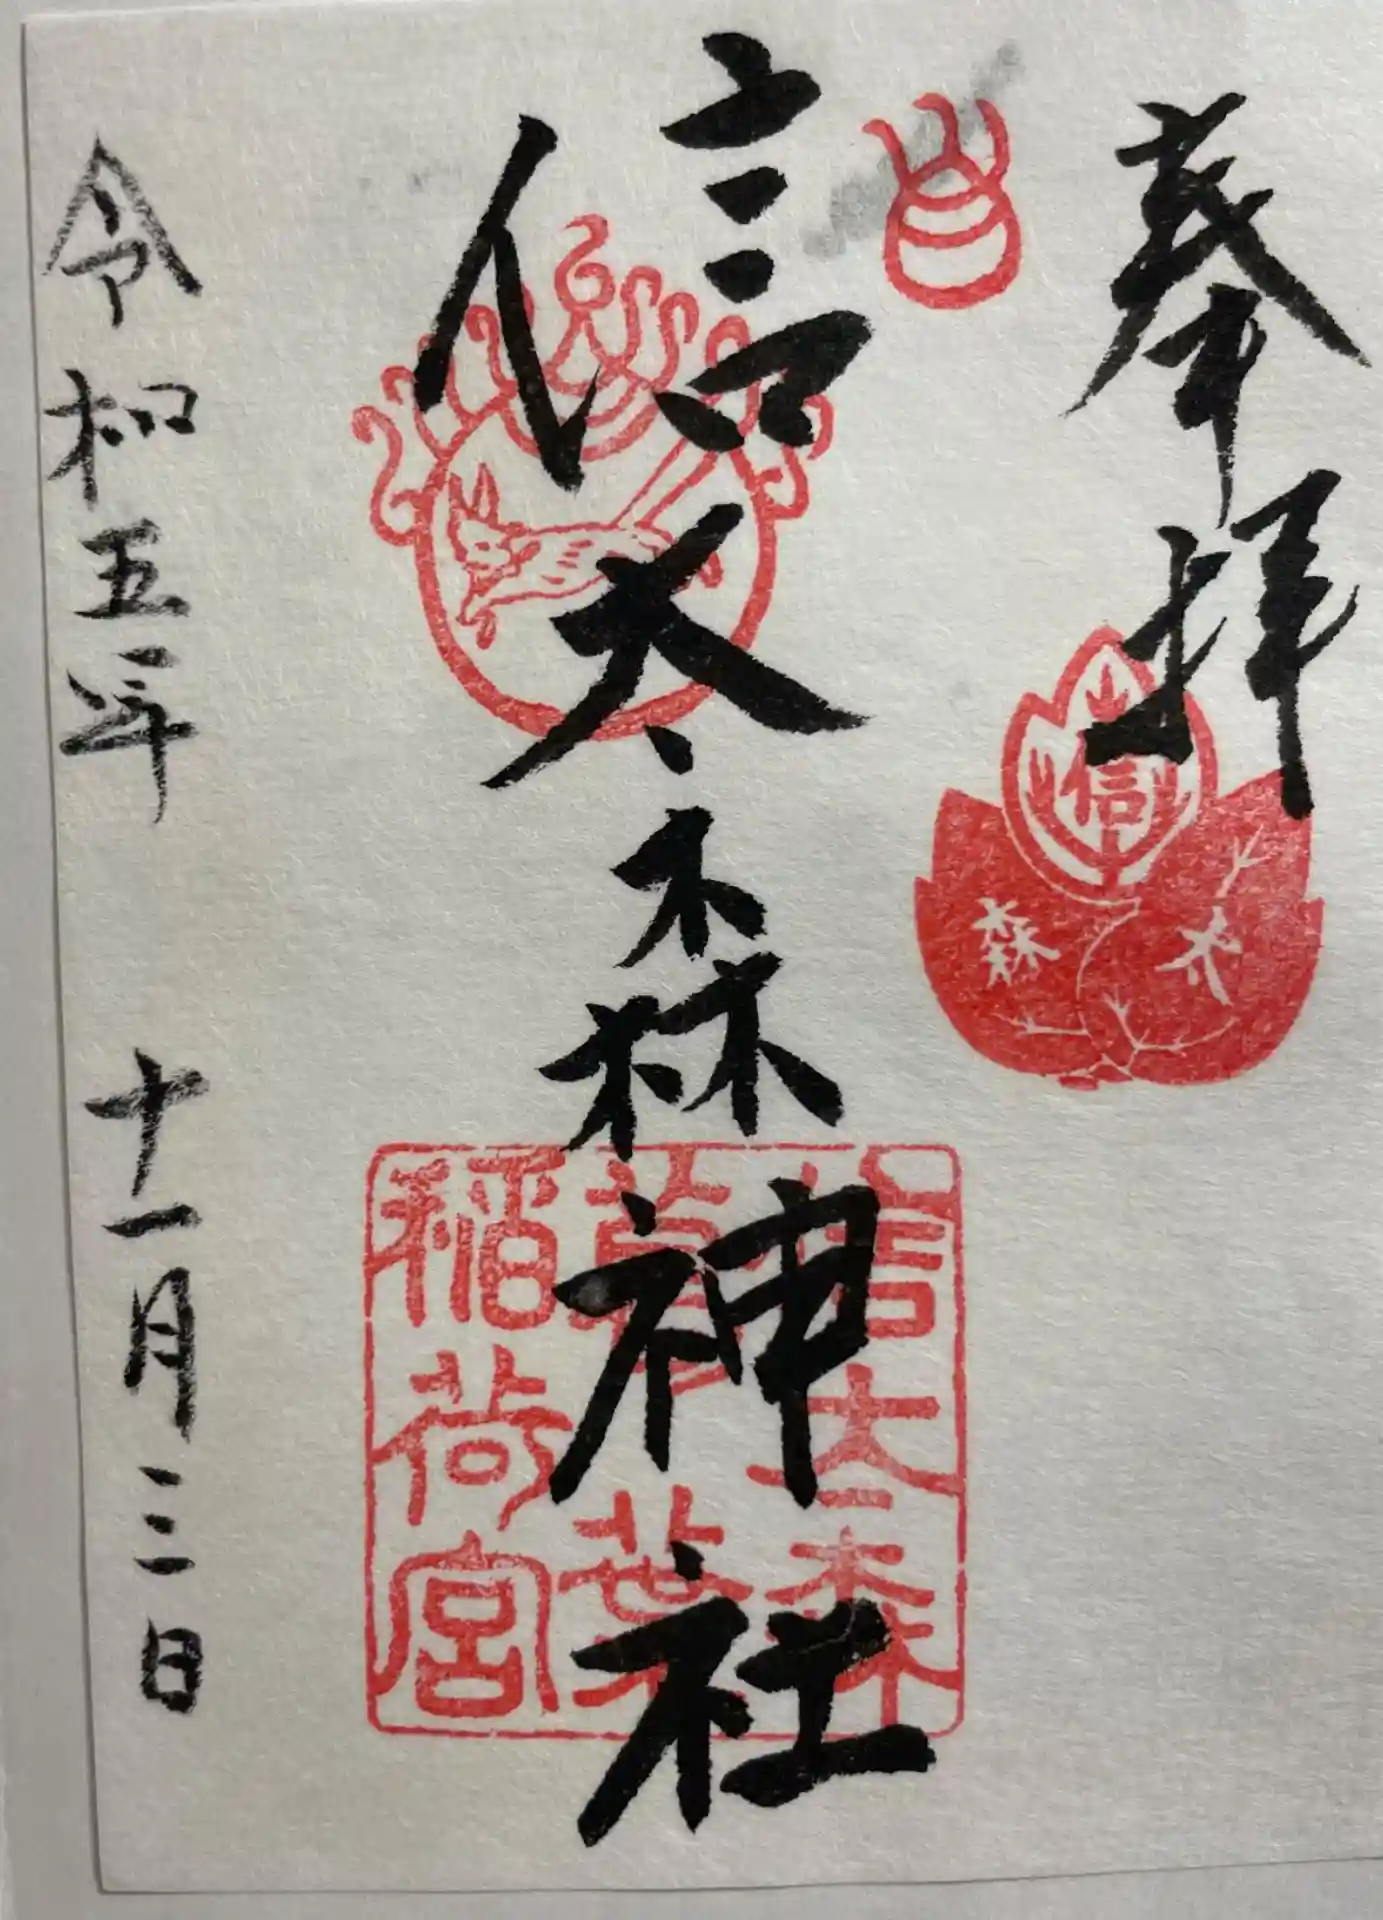 奉拝
信
太
森
信太森神社
信太森
葛葉
稲荷宮
令和五年 十一月三日